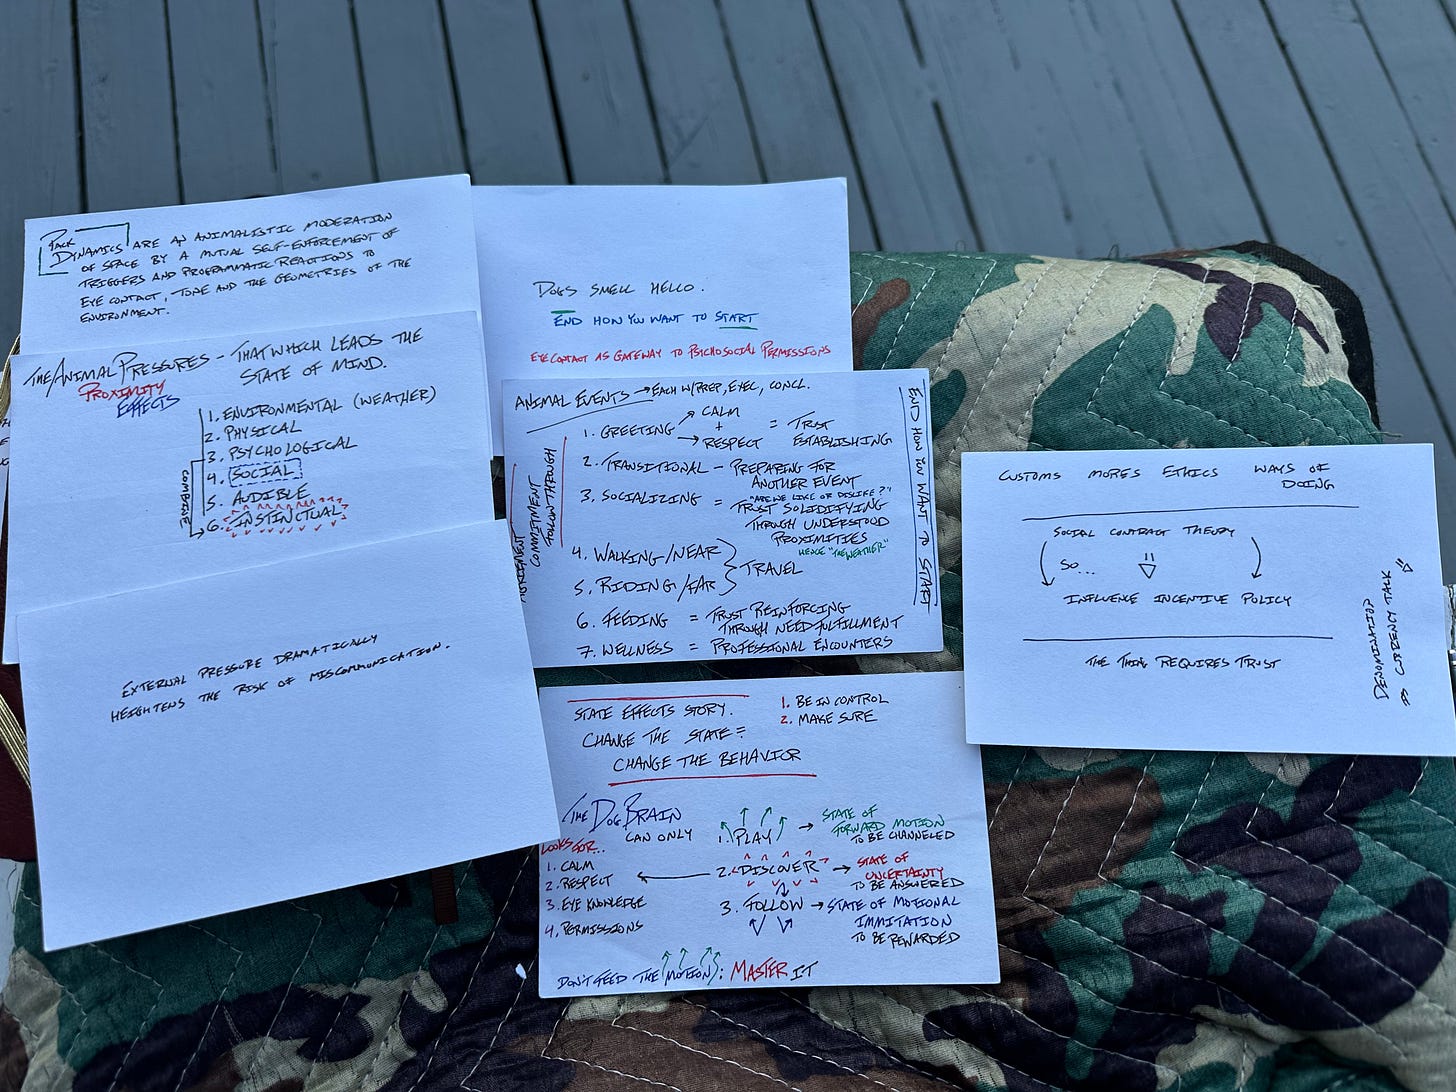 PACK
DYNAMICS ARE AN ANIMALISTIC MODERATION
OF SPACE BY A MUTUAL SELF-ENFORCEMENT OF
TRIGGERS AND PROGRAMMATIC REACTIONS TO
EYE CONTACT, TONE AND THE GEOMETRIES OF THE
ENVIRONMENT.
THE ANIMAL PRESSURES - THAT WHICH LEADS THE
STATE OF MIND.
PROXIMITY
EFFECTS
1. ENVIRONMENTAL (WEATHER)
2. PHYSICAL
3. PSYCHOLOGICAL
4. SOCIAL
5. AUDIBLE
6. INSTINCTUAL
COMBINE
EXTERNAL PRESSURE DRAMATICALLY
HEIGHTENS THE RISK OF MISCOMMUNICATION.
DOGS SMELL HELLO.
END HOW YOU WANT TO START
EYE CONTACT AS GATEWAY TO PSYCHOSOCIAL PERMISSIONS
ANIMAL EVENTS → EACH W/PREP, EXEC, CONCL.
1. GREETING → CALM
+
→ RESPECT
= TRUST
ESTABLISHING
2. TRANSITIONAL - PREPARING FOR
ANOTHER EVENT
3. SOCIALIZING = "ARE WE LIKE OR DISLIKE?"
TRUST SOLIDIFYING
THROUGH UNDERSTOOD
PROXIMITIES
HENCE "THE WEATHER"
4. WALKING/NEAR
5. RIDING/FAR
TRAVEL
6. FEEDING = TRUST REINFORCING
THROUGH NEED FULFILLMENT
7. WELLNESS = PROFESSIONAL ENCOUNTERS
COMMITMENT
FOLLOWTHROUGH
END HOW YOU WANT TO START
STATE EFFECTS STORY.
CHANGE THE STATE =
CHANGE THE BEHAVIOR
1. BE IN CONTROL
2. MAKE SURE
THE DOG BRAIN
CAN ONLY
LOOKS FOR...
1. CALM
2. RESPECT
3. EYE KNOWLEDGE
4. PERMISSIONS
1. PLAY → STATE OF
FORWARD MOTION
TO BE CHANNELED
2. DISCOVER → STATE OF
UNCERTAINTY
TO BE ANSWERED
3. FOLLOW → STATE OF MOTIONAL
IMMITATION
TO BE REWARDED
DON'T FEED THE MOTION; MASTER IT
CUSTOMS MORES ETHICS WAYS OF
DOING
SOCIAL CONTRACT THEORY
SO...
INFLUENCE INCENTIVE POLICY
THE THING REQUIRES TRUST
DENOMINATION
AS CURRENCY TALK